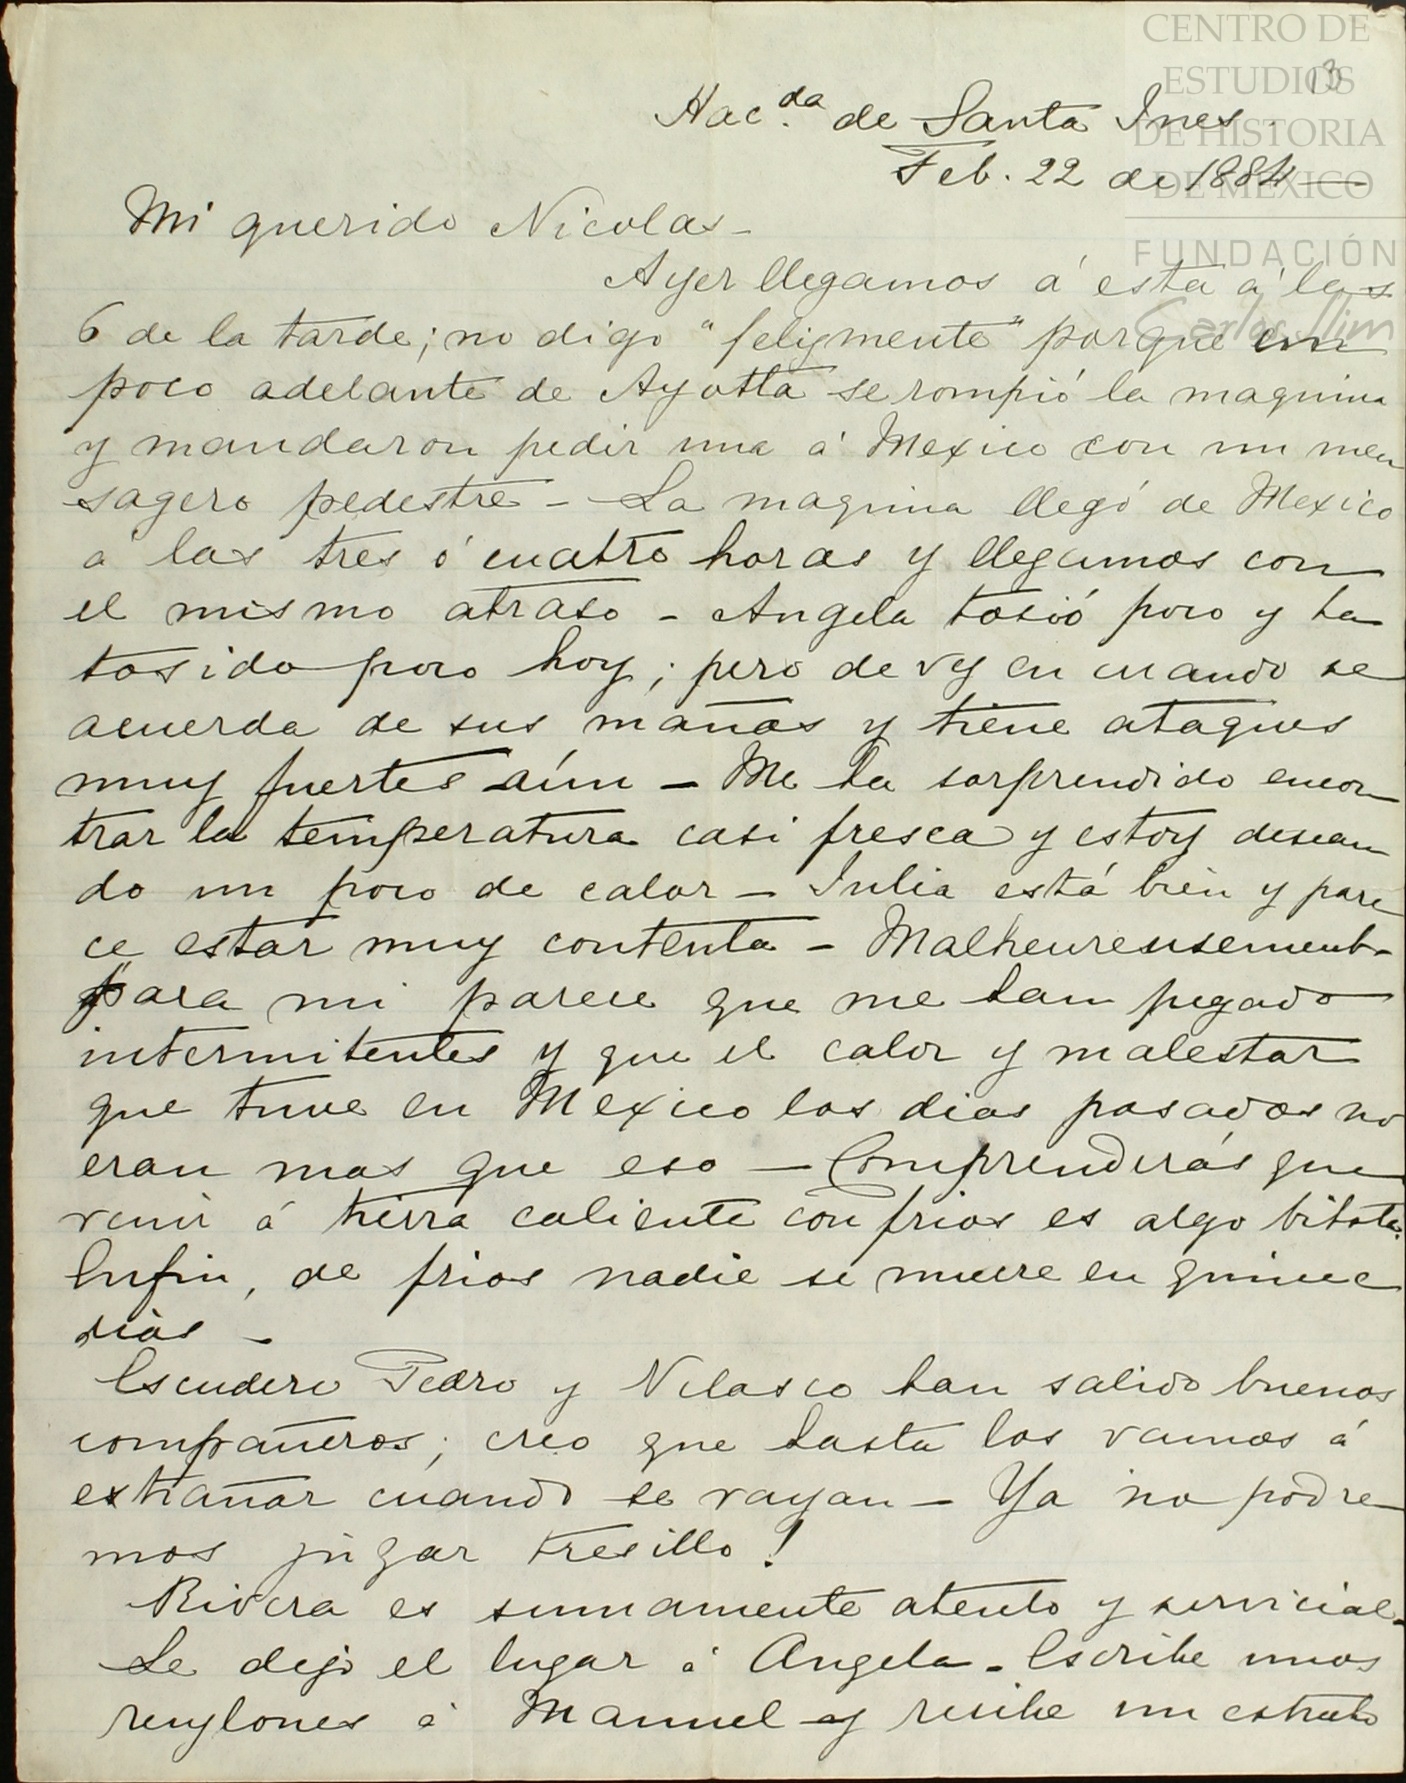 CENTRO DE
ESTUDIOS
DE HISTORIA
DE MEXICO
FUNDACIÓN
Carlos Slim
13
Hac.da de Santa Ines.
Feb. 22 de 1884
Mi querido Nicolas -
Ayer llegamos á esta á las
6 de la tarde; no digo "felizmente" porque un
poco adelante de Ayotla se rompió la maquina
y mandaron pedir una á Mexico con un men
sagero pedestre - La maquina llegó de Mexico
á las tres ó cuatro horas y llegamos con
el mismo atraso - Angela tosió poco y ha
tosido poco hoy; pero de vez en cuando se
acuerda de sus mañas y tiene ataques
muy fuertes aún - Me ha sorprendido encon
trar la temperatura casi fresca y estoy desean
do un poco de calor - Julia está bien y pare
ce estar muy contenta - Malheureusement
para mi parece que me han pegado
intermitentes y que el calor y malestar
que tuve en Mexico los dias pasados no
eran mas que eso - Comprenderás que
venir á tierra caliente con frios es algo
Enfin, de frios nadie se muere en quince
dias -
Escudero Pedro y Velasco han salido buenos
compañeros; creo que hasta los vamos á
extrañar cuando se vayan - Ya no podre
mos jugar tresillo!
Rivera es sumamente atento y servicial -
Le dejo el lugar á Angela - Escribe unos
renglones á Manuel y recibe un estrecho